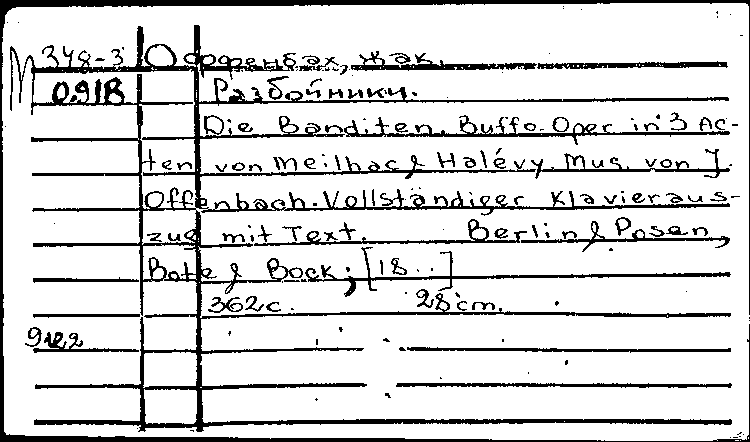 М 348-3 Оффенбах, Жак.
0.918 Разбойники.
Die Banditen. Buffo-Oper in 3 Ac-
ten von Meilhac & Halévy. Mus. von J.
Offenbach. Vollständiger Klavieraus-
zug mit Text. Berlin & Posen,
Bote & Bock; [18..]
362 с. 28 cm.